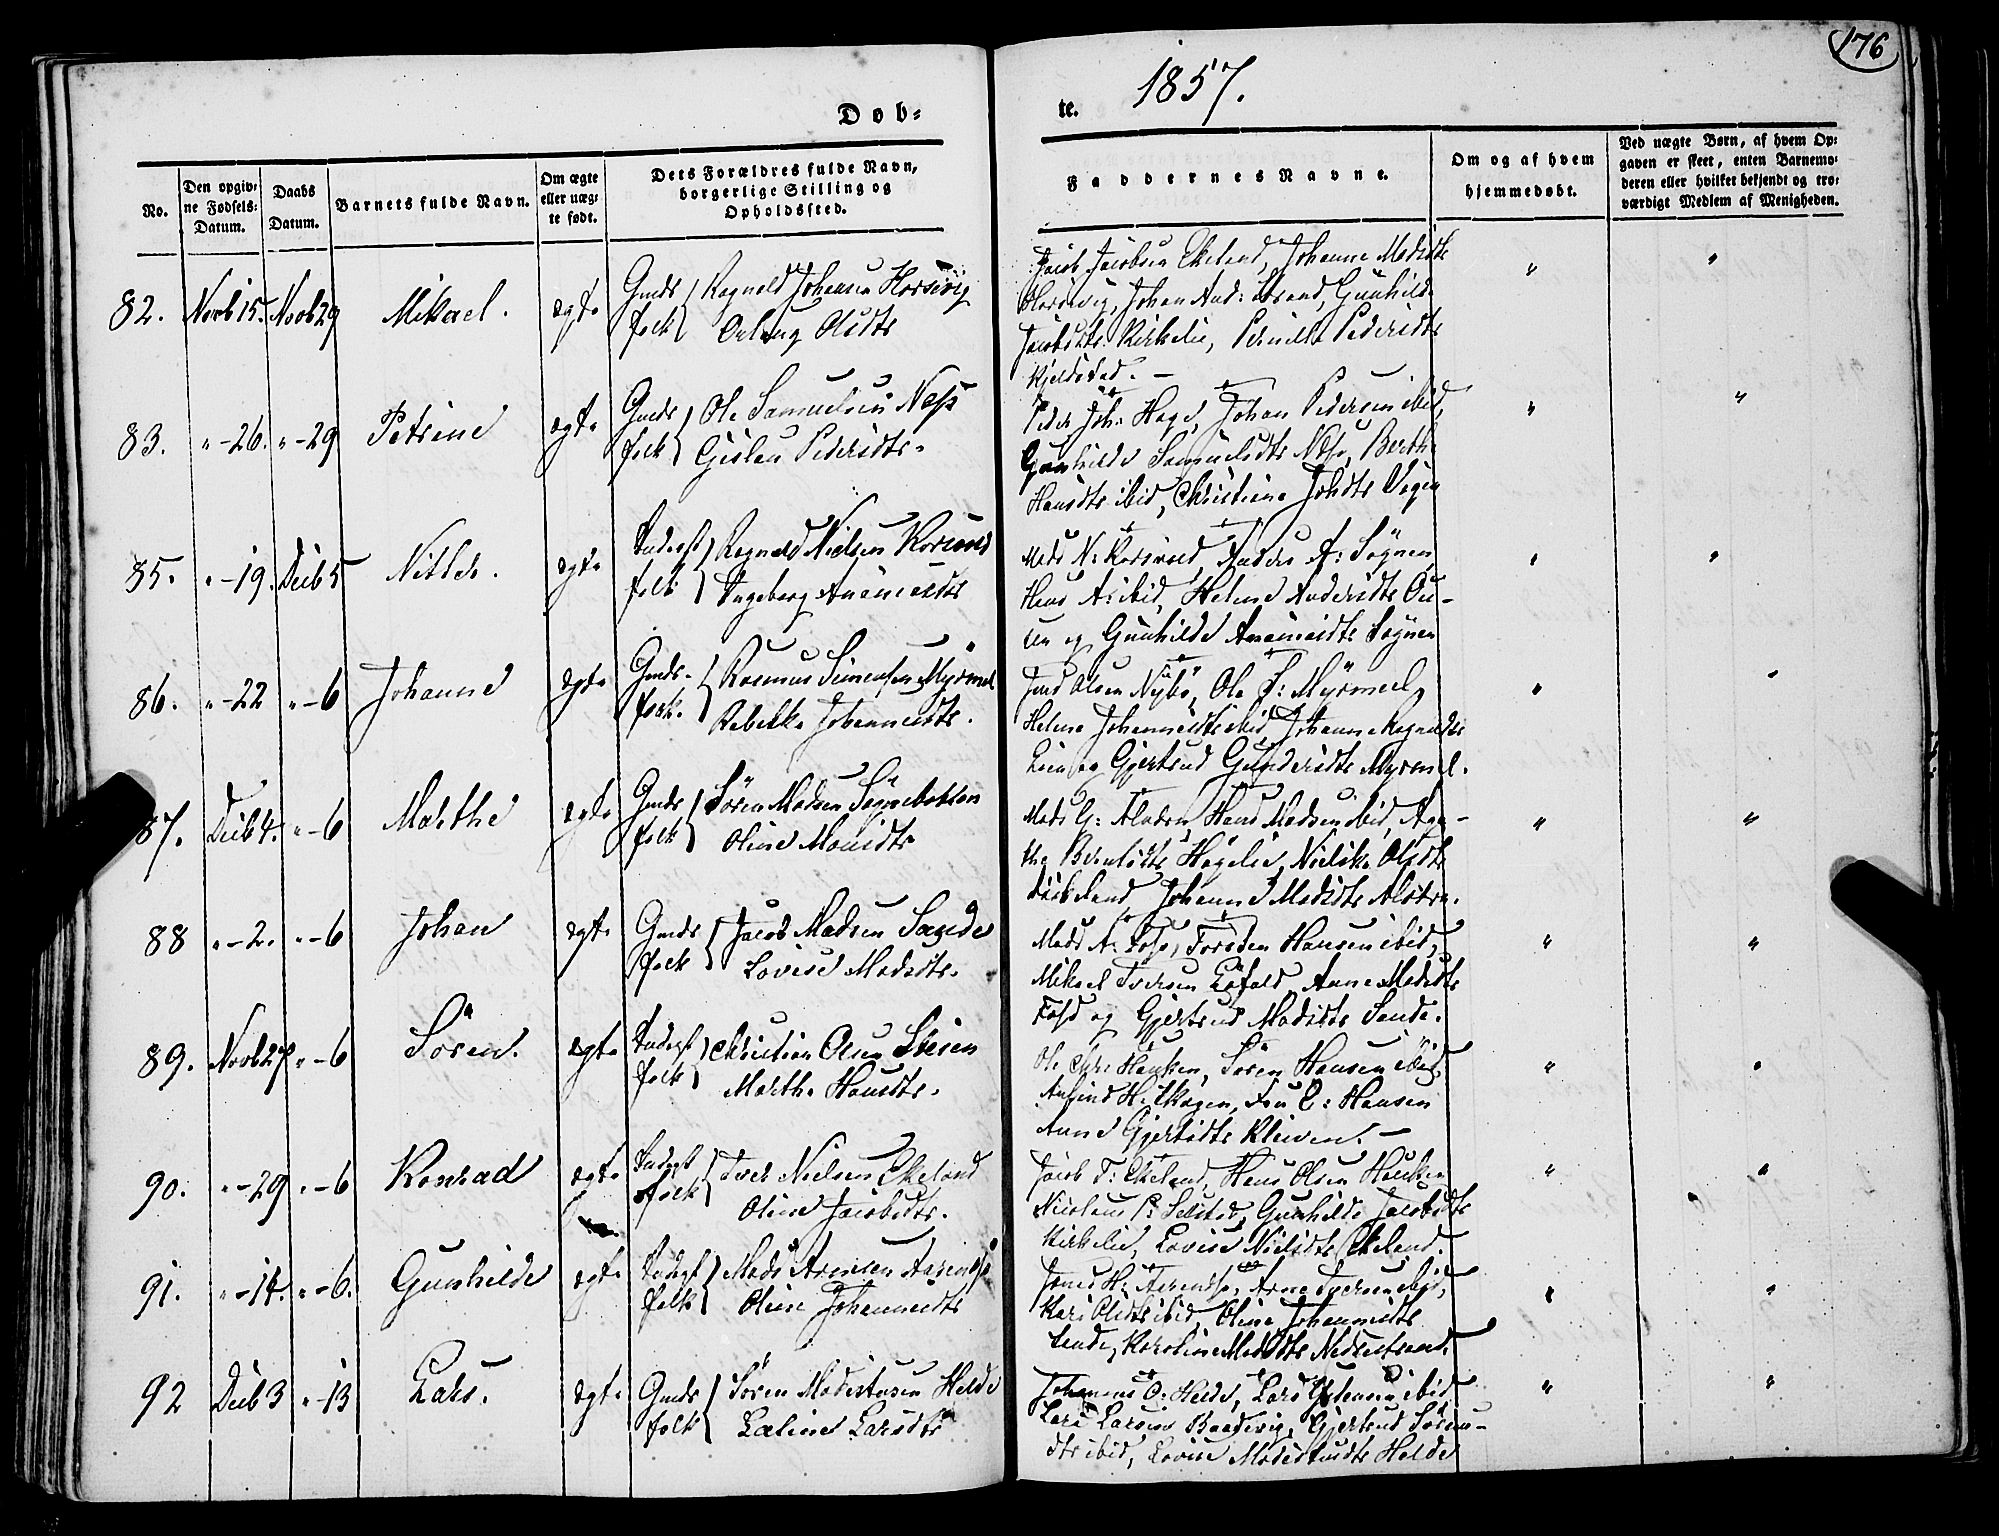 176
1857.
Døb-
te.
No.
Den opgiv-
ne Fødsels-
Datum.
Daabs
Datum.
Barnets fulde Navn.
Om ægte
eller uæg-
te født.
Dets Forældres fulde Navn,
borgerlige Stilling og
Opholdssted.
Faddernes Navne.
Om og af hvem
hjemmedøbt.
Ved uægte Børn, af hvem Op-
gaven er skeet, enten Barnemo-
deren eller hvilket bekjendt og tro-
værdigt Medlem af Menigheden.
82. Novb 15. Novb 29 Mikael. ægte Gmds folk Ragnald Johansen Horsevig
Olsdtr
Jacob Jacobsen Ekeland, Johanne Madsdtr
Horsevig, Johan And: Strand, Gunhilde
Jacobsdtr Kirkelie, Pernille Pedersdtr
Kjeldstad. —
" "
83. " - 26. " - 29 Petrine ægte Gmds folk Ole Samuelsen Næss
Gislau Pedersdtr.
Peder Joh: Hage, Johan Pedersen ibid,
Gunhilde Samuelsdtr Næss, Berthe
Hansdtr ibid, Christiane Johsdtr
" "
85. " - 19. Decb 5 Nille. ægte Inderst folk Ragnald Nielsen Korsvold
Ingeborg
Mads N: Korsvold, Anders A: Sognen,
Hans A: ibid, Helene Andersdtr Ou-
sen og Gunhilde Sognen
" "
86. " - 22 " - 6 Johanne ægte Gmds- folk. Rasmus Simensen Myrmel
Rebekka Johannesdtr.
Olsen Nybø, Ole S: Myrmel,
Helene Johannesdtr ibid, Johanne Ragnaldsdtr
Lien og Gjertrud Gundersdtr Myrmel.
" "
87. Decb 4. " - 6 Marthe ægte Gmds folk Søren Madsen Sognebotten
Oline Monsdtr
Mads G: Aladsen, Hans Madsen ibid, Aga-
the Berntsdtr Høgelie, Nielsine Olsdtr
Eikeland, Johanne Madsdtr
" "
88 " - 2. " - 6 Johan ægte Gmds folk Jacob Madsen Sande
Lovise Madsdtr.
Mads A: Foss, Torsten Hansen ibid,
Mikael Iversen Løfald, Anne Madsdtr
Foss og Gjertrud Madsdtr Sande.
" "
89. Novb 27 " - 6 Søren. ægte Inderst folk Christian Olsen Steien
Marthe Hansdtr.
Ole Chr: Hauken, Søren Hansen ibid,
Anfind H: Skagen, Fru C: Hansen
Anne Gjertsdtr Kleiven. —
" "
90. " - 29 " - 6 Konrad ægte Inderst folk Iver Nielsen Ekeland
Oline Jacobsdtr.
Jacob T: Ekeland, Hans Olsen Hauken
Nicolaus P: Selstad, Gunhilde Jacobsdtr
Kirkelie, Lovise Nielsdtr Ekeland.
" "
91. " - 14. " - 6. Gunhilde ægte Inderst folk Mads Arentsen
Oline Johannesdtr
Jens H: Arne Iversen ibid,
Kari Olsdtr ibid, Oline Johannesdtr
Sande, Karoline Madsdtr Nedrestrand.
" "
92 Decb 3 " - 13 Lars. ægte Gmds folk Søren Modestusen Helde
Larsdtr
Johannes O: Helde, Lars Johansen ibid,
Lars Larsen Baadsvig, Gjertrud Søren-
dtr ibid, Lovise Modestusdtr Helde
" "